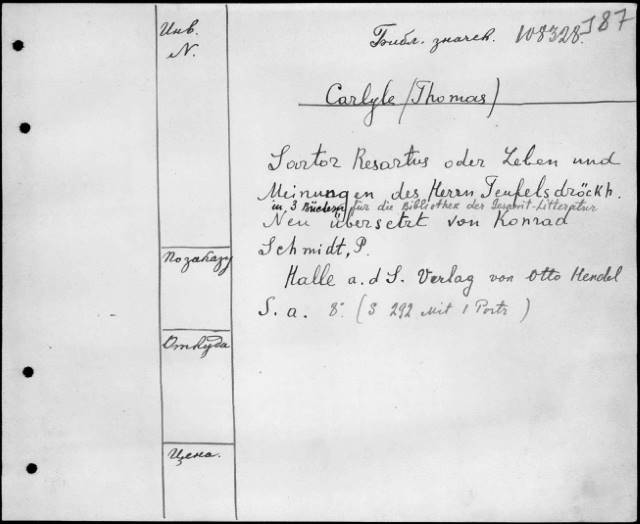 Инв.
N.
Библ. значек. 108328. I87
Carlyle (Thomas)
Sartor Resartus oder Leben und
Meinungen des Herrn Teufelsdröckh.
in 3 Büchern für die Bibliothek der Gesamt-Litteratur
Neu übersetzt von Konrad
По заказу
Schmidt, P.
Halle a. d S. Verlag von Otto Hendel
S. a. 8° (S 292 mit 1 Portr)
Откуда
Цена.